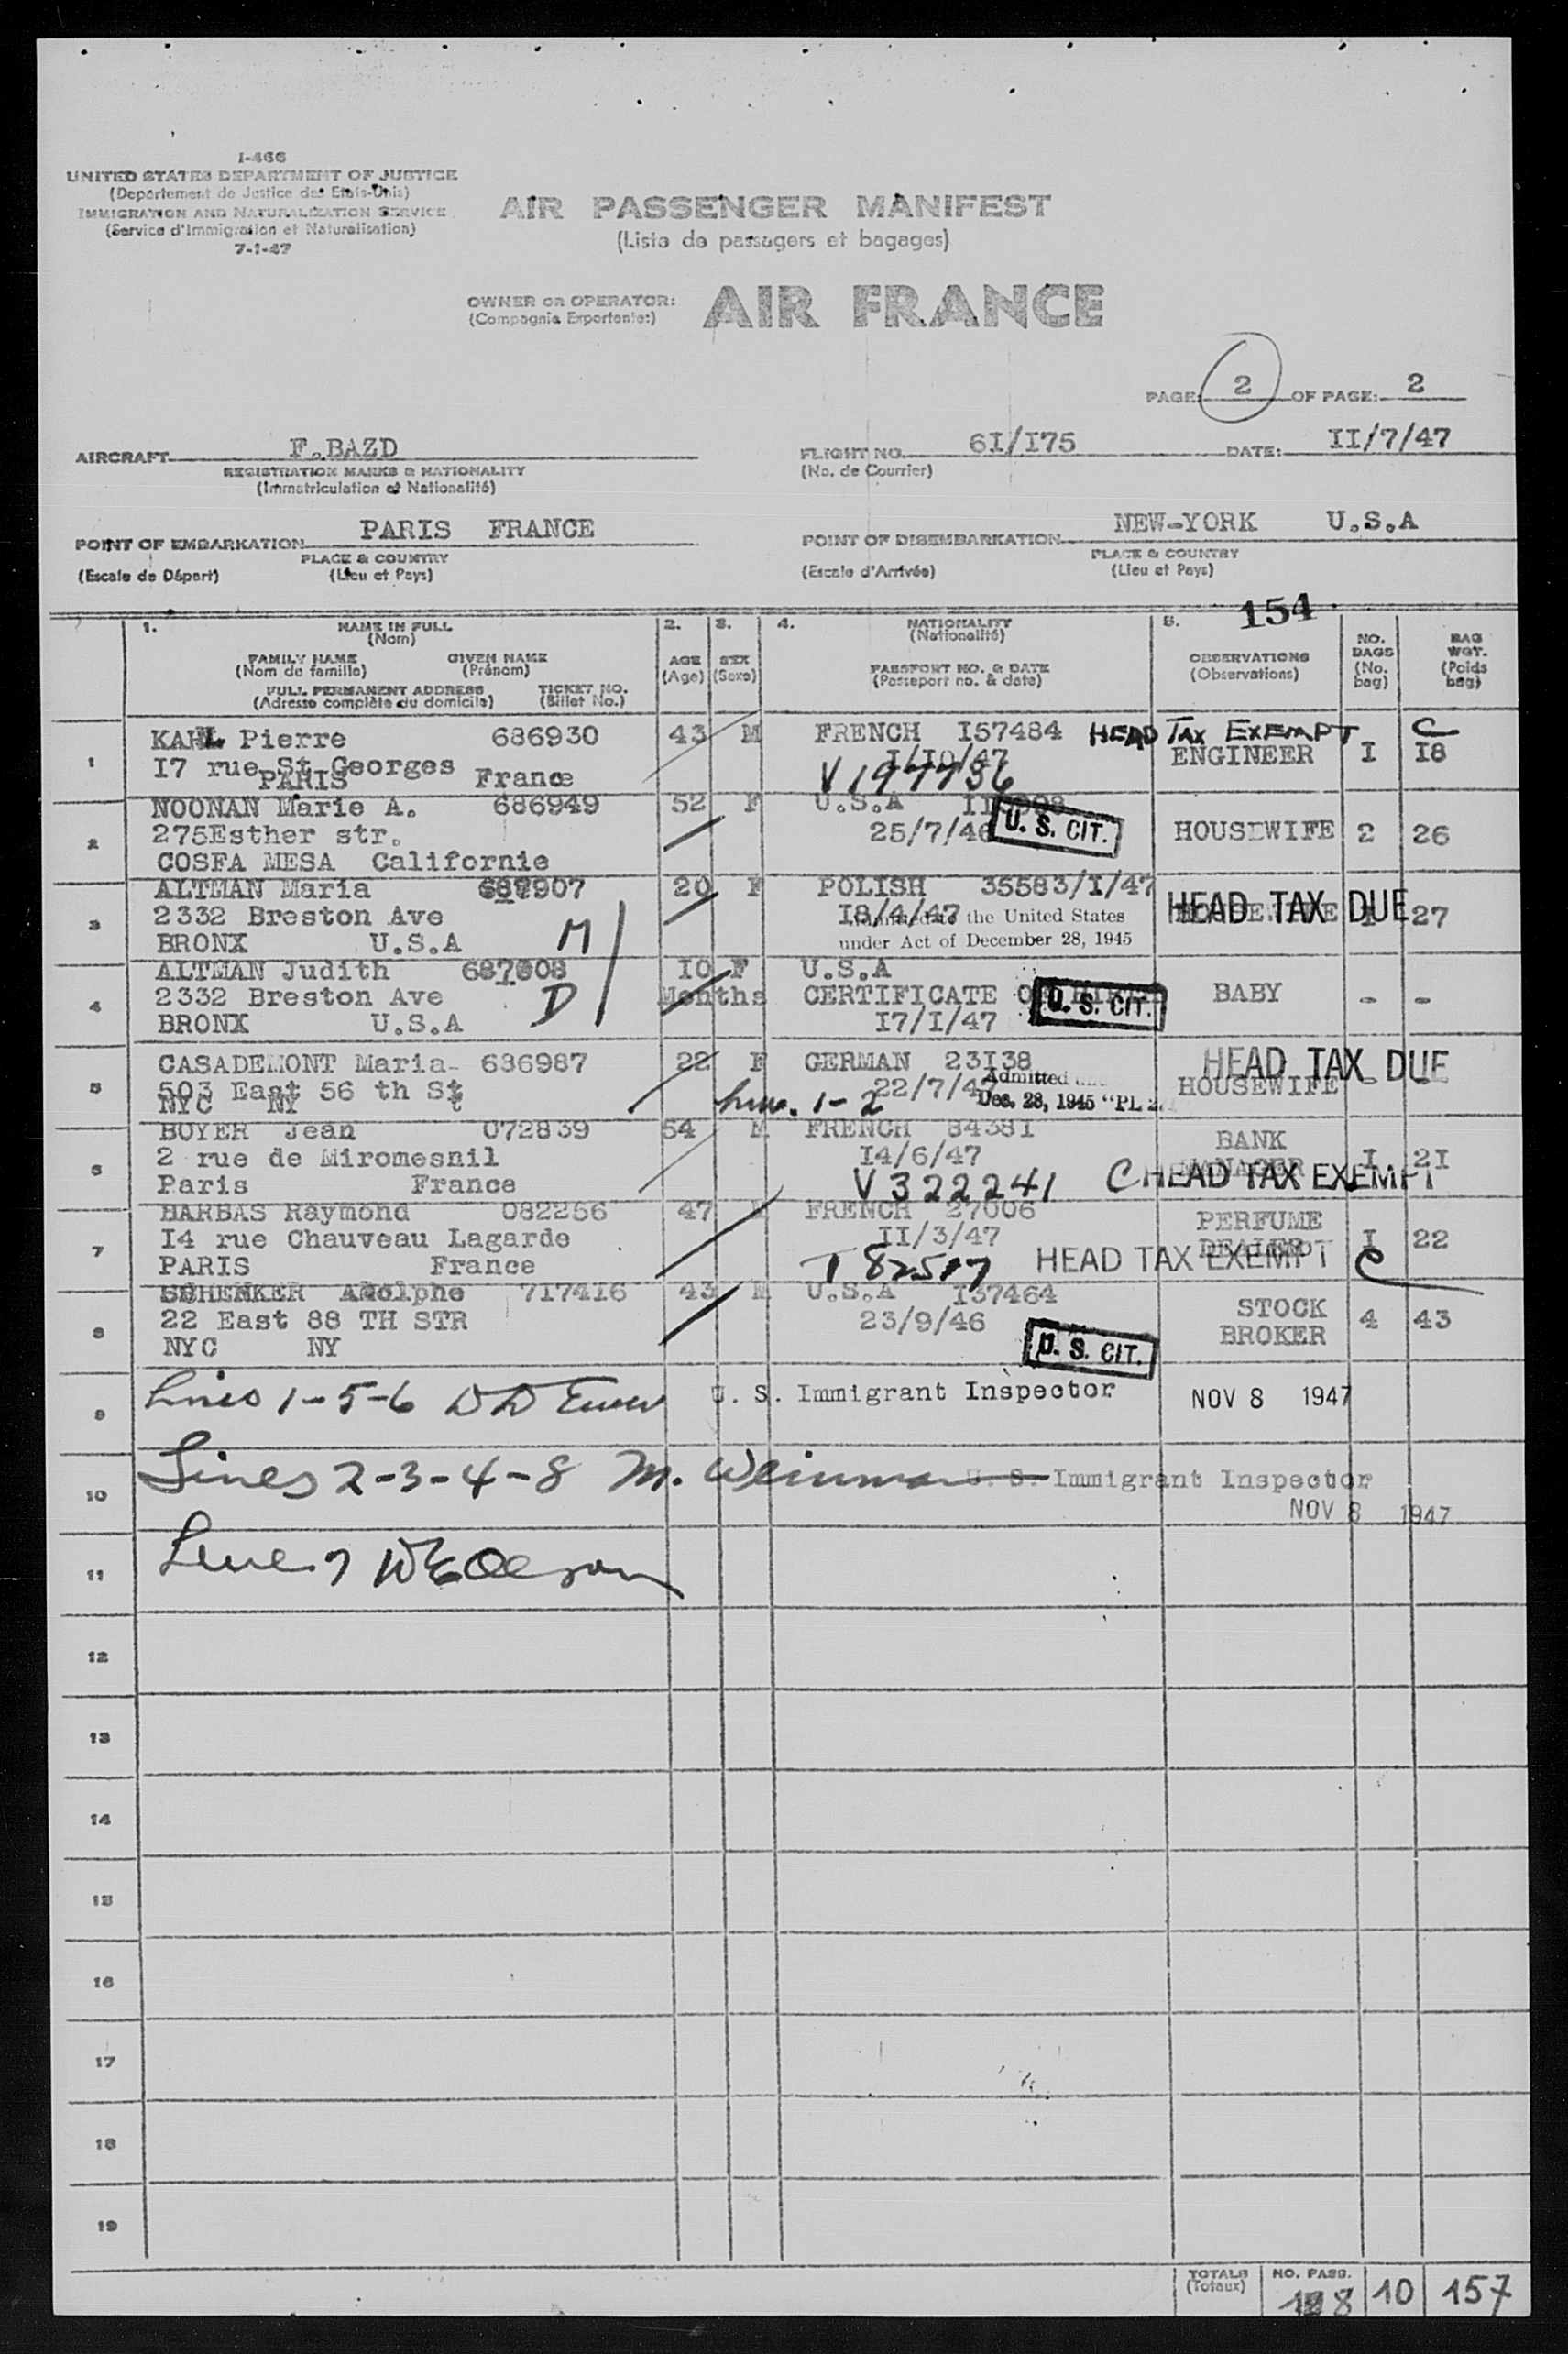 I-466
UNITED STATES DEPARTMENT OF JUSTICE
(Departement de Justice des Etats-Unis)
IMMIGRATION AND NATURALIZATION SERVICE
(Service d'Immigration et Naturalisation)
7-1-47
AIR PASSENGER MANIFEST
(Liste de passagers et bagages)
OWNER OR OPERATOR: AIR FRANCE
(Compagnie Exportante:)
PAGE: 2 OF PAGE: 2
AIRCRAFT F.BAZD
REGISTRATION MARKS & NATIONALITY
(Immatriculation et Nationalité)
FLIGHT NO. 6I/I75 DATE: II/7/47
(No. de Courrier)
POINT OF EMBARKATION PARIS FRANCE
PLACE & COUNTRY
(Escale de Départ) (Lieu et Pays)
POINT OF DISEMBARKATION NEW-YORK U.S.A
PLACE & COUNTRY
(Escale d'Arrivée) (Lieu et Pays)
154
1. NAME IN FULL 2. 3. 4. NATIONALITY 5.
(Nom) (Nationalité)
FAMILY NAME GIVEN NAME AGE SEX PASSPORT NO. & DATE OBSERVATIONS NO. BAGS BAG WGT.
(Nom de famille) (Prénom) (Age) (Sexe) (Passeport no. & date) (Observations) (No. bag) (Poids bag)
FULL PERMANENT ADDRESS TICKET NO.
(Adresse complète du domicile) (Billet No.)
1 KAHL Pierre 686930 43 M FRENCH I57484 HEAD TAX EXEMPT C
I7 rue St Georges I/I0/47 ENGINEER I I8
PARIS France V197736
2 NOONAN Marie A. 686949 52 F U.S.A
275Esther str. 25/7/46 U. S. CIT. HOUSEWIFE 2 26
COSFA MESA Californie
3 ALTMAN Maria 687907 20 F POLISH 35583/I/47 HEAD TAX DUE
2332 Breston Ave I8/4/47 the United States 27
BRONX U.S.A M under Act of December 28, 1945
4 ALTMAN Judith I0 F U.S.A
2332 Breston Ave Months CERTIFICATE U. S. CIT. BABY - -
BRONX U.S.A D I7/I/47
5 CASADEMONT Maria- 686987 22 F GERMAN 23I38 HEAD TAX DUE
503 East 56 th St 22/7/47 Admitted HOUSEWIFE - -
NYC NY 1-2 Dec. 28, 1945 "PL
6 BOYER Jean 072839 54 M FRENCH 8438I BANK
2 rue de Miromesnil I4/6/47 MANAGER I 2I
Paris France V322241 C HEAD TAX EXEMPT
7 BARBAS Raymond 082256 47 M FRENCH 27006 PERFUME
I4 rue Chauveau Lagarde II/3/47 DEALER I 22
PARIS France T 82517 HEAD TAX EXEMPT C
8 SCHENKER Adolphe 717416 43 M U.S.A I37464
22 East 88 TH STR 23/9/46 STOCK 4 43
NYC NY U. S. CIT. BROKER
9 Lines 1-5-6 U. S. Immigrant Inspector NOV 8 1947
10 Lines 2-3-4-8 M. U. S. Immigrant Inspector
NOV 8 1947
11 Line 7
12
13
14
15
16
17
18
19
TOTALS NO. PASS.
(Totaux) 8 10 157